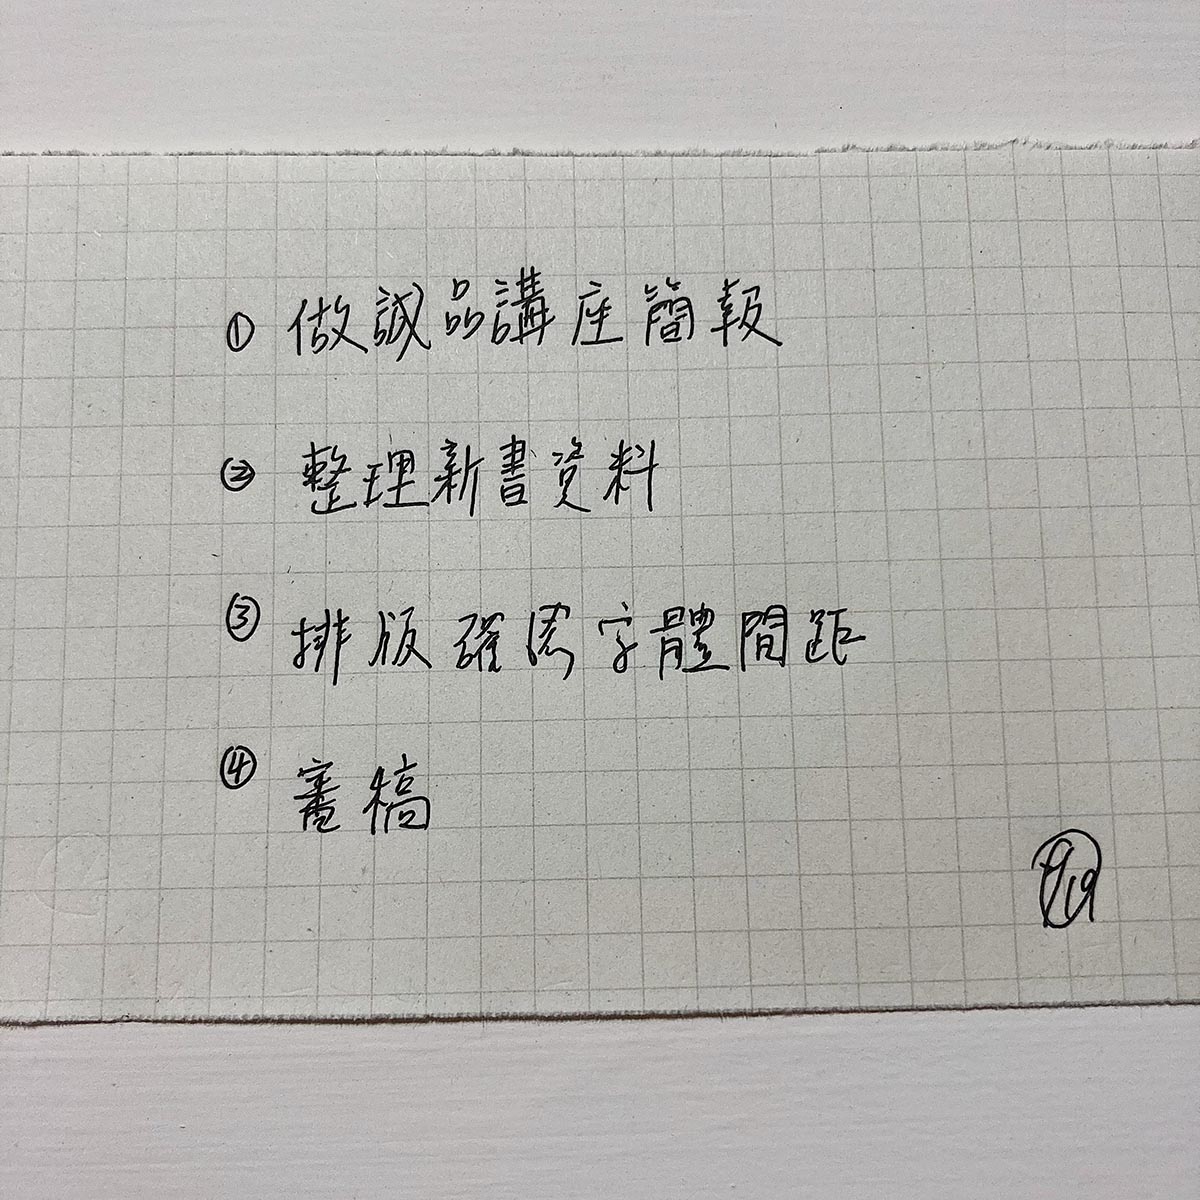 ① 做誠品講座簡報
② 整理新書資料
③ 排版確認字體間距
④ 審稿